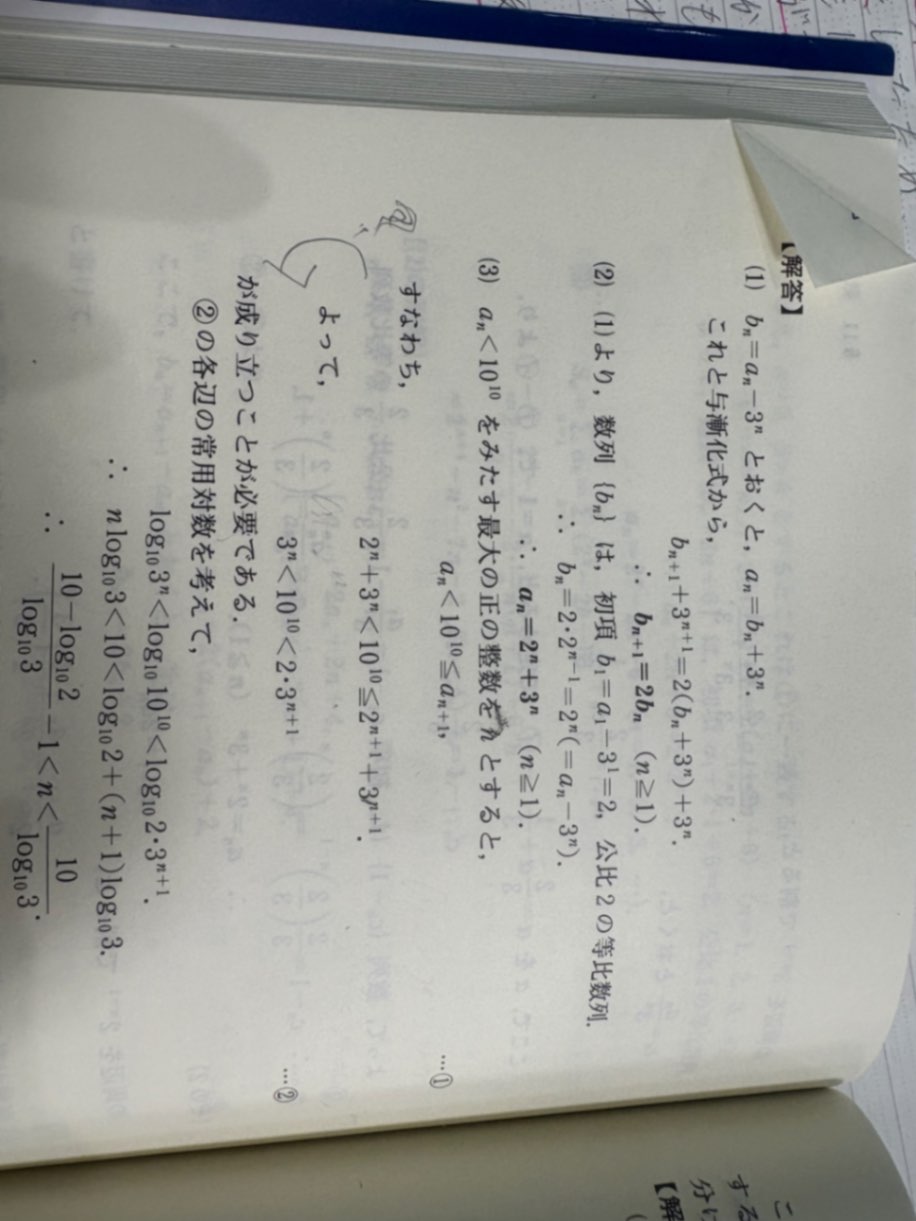 【解答】
(1) bₙ=aₙ−3ⁿ とおくと, aₙ=bₙ+3ⁿ.
これと与漸化式から,
bₙ₊₁+3ⁿ⁺¹=2(bₙ+3ⁿ)+3ⁿ.
∴ bₙ₊₁=2bₙ (n≧1).
(2) (1)より, 数列 {bₙ} は, 初項 b₁=a₁−3¹=2, 公比 2 の等比数列.
∴ bₙ=2・2ⁿ⁻¹=2ⁿ(=aₙ−3ⁿ).
∴ aₙ=2ⁿ+3ⁿ (n≧1).
(3) aₙ<10¹⁰ をみたす最大の正の整数を n とすると,
aₙ<10¹⁰≦aₙ₊₁, …①
すなわち, 2ⁿ+3ⁿ<10¹⁰≦2ⁿ⁺¹+3ⁿ⁺¹.
よって, 3ⁿ<10¹⁰<2・3ⁿ⁺¹ …②
が成り立つことが必要である.
②の各辺の常用対数を考えて,
log₁₀3ⁿ<log₁₀10¹⁰<log₁₀2・3ⁿ⁺¹.
∴ nlog₁₀3<10<log₁₀2+(n+1)log₁₀3.
∴ (10−log₁₀2)/log₁₀3 −1<n<10/log₁₀3.
こ
する
分け
【解